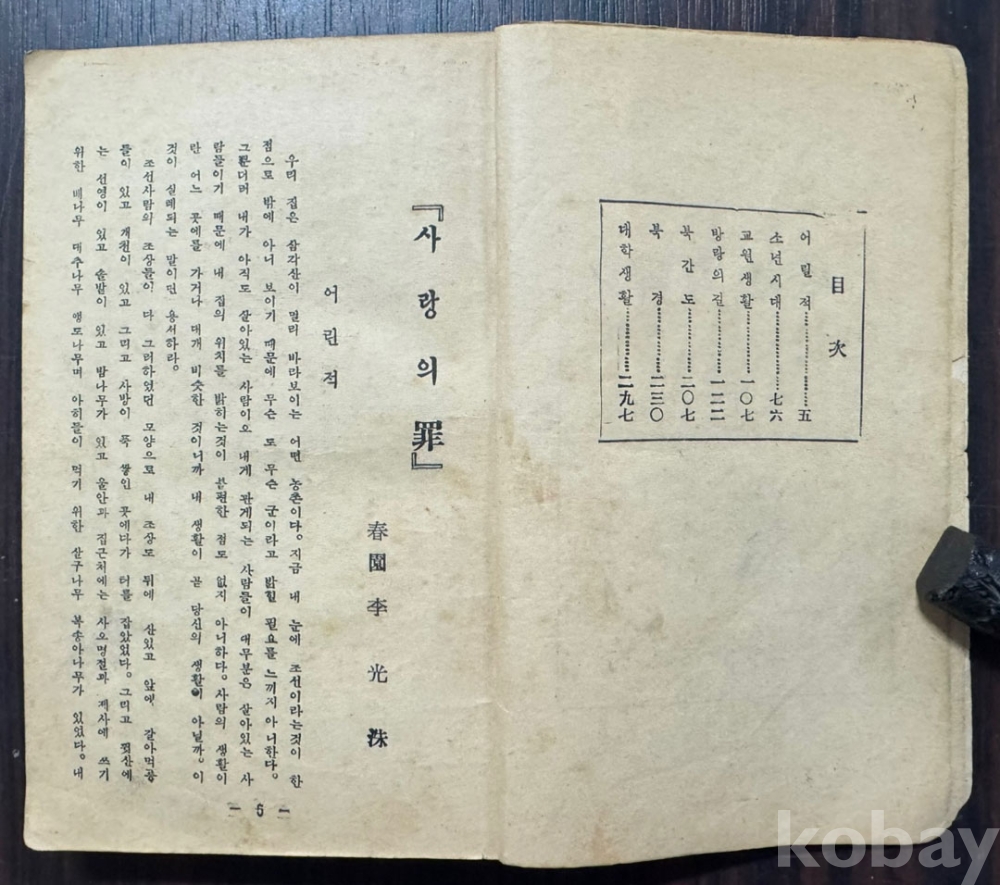 目次
어릴적……………五
소년시대……………七六
교원생활…………一〇七
방랑의길…………一二二
북간도…………二〇七
북경…………二三〇
대학생활…………二九七
『사랑의 罪』
春園 李光洙
어린적
우리 집은 삼각산이 멀리 바라보이는 어떤 농촌이다. 지금 내 눈에 조선이라는것이 한
점으로 밖에 아니 보이기 때문에 무슨 도 무슨 군이라고 밝힐 필요를 느끼지 아니한다.
그뿐더러 내가 아직도 살아있는 사람이오 내게 관계되는 사람들이 대부분은 살아있는 사
람들이기 때문에 내 집의 위치를 밝히는것이 불편한 점도 없지 아니하다. 사람의 생활이
란 어느 곳에를 가거나 대개 비슷한 것이니까 내 생활이 곧 당신의 생활이 아닐까. 이
것이 실례되는 말이면 용서하라.
조선사람의 조상들이 다 그러하였던 모양으로 내 조상도 뒤에 산있고 앞에 갈아먹을
들이 있고 개천이 있고 그리고 사방이 푹 쌓인 곳에다가 터를 잡았었다. 그리고 뒷산에
는 선영이 있고 솔밭이 있고 밤나무가 있고 울안과 집근처에는 사오명절과 제사에 쓰기
위한 배나무 대추나무 앵도나무며 아히들이 먹기 위한 살구나무 복송아나무가 있었다. 내
— 5 —
kobay